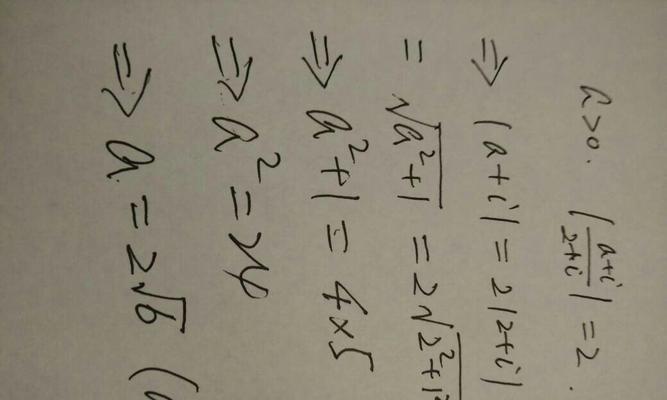 a>0. |(a+i)/(2+i)| = 2.
⇒ |a+i| = 2|2+i|
= √(a²+1) = 2√(2²+1²
⇒ a²+1 = 4×5
⇒ a² = 24
⇒ a = 2√6 (